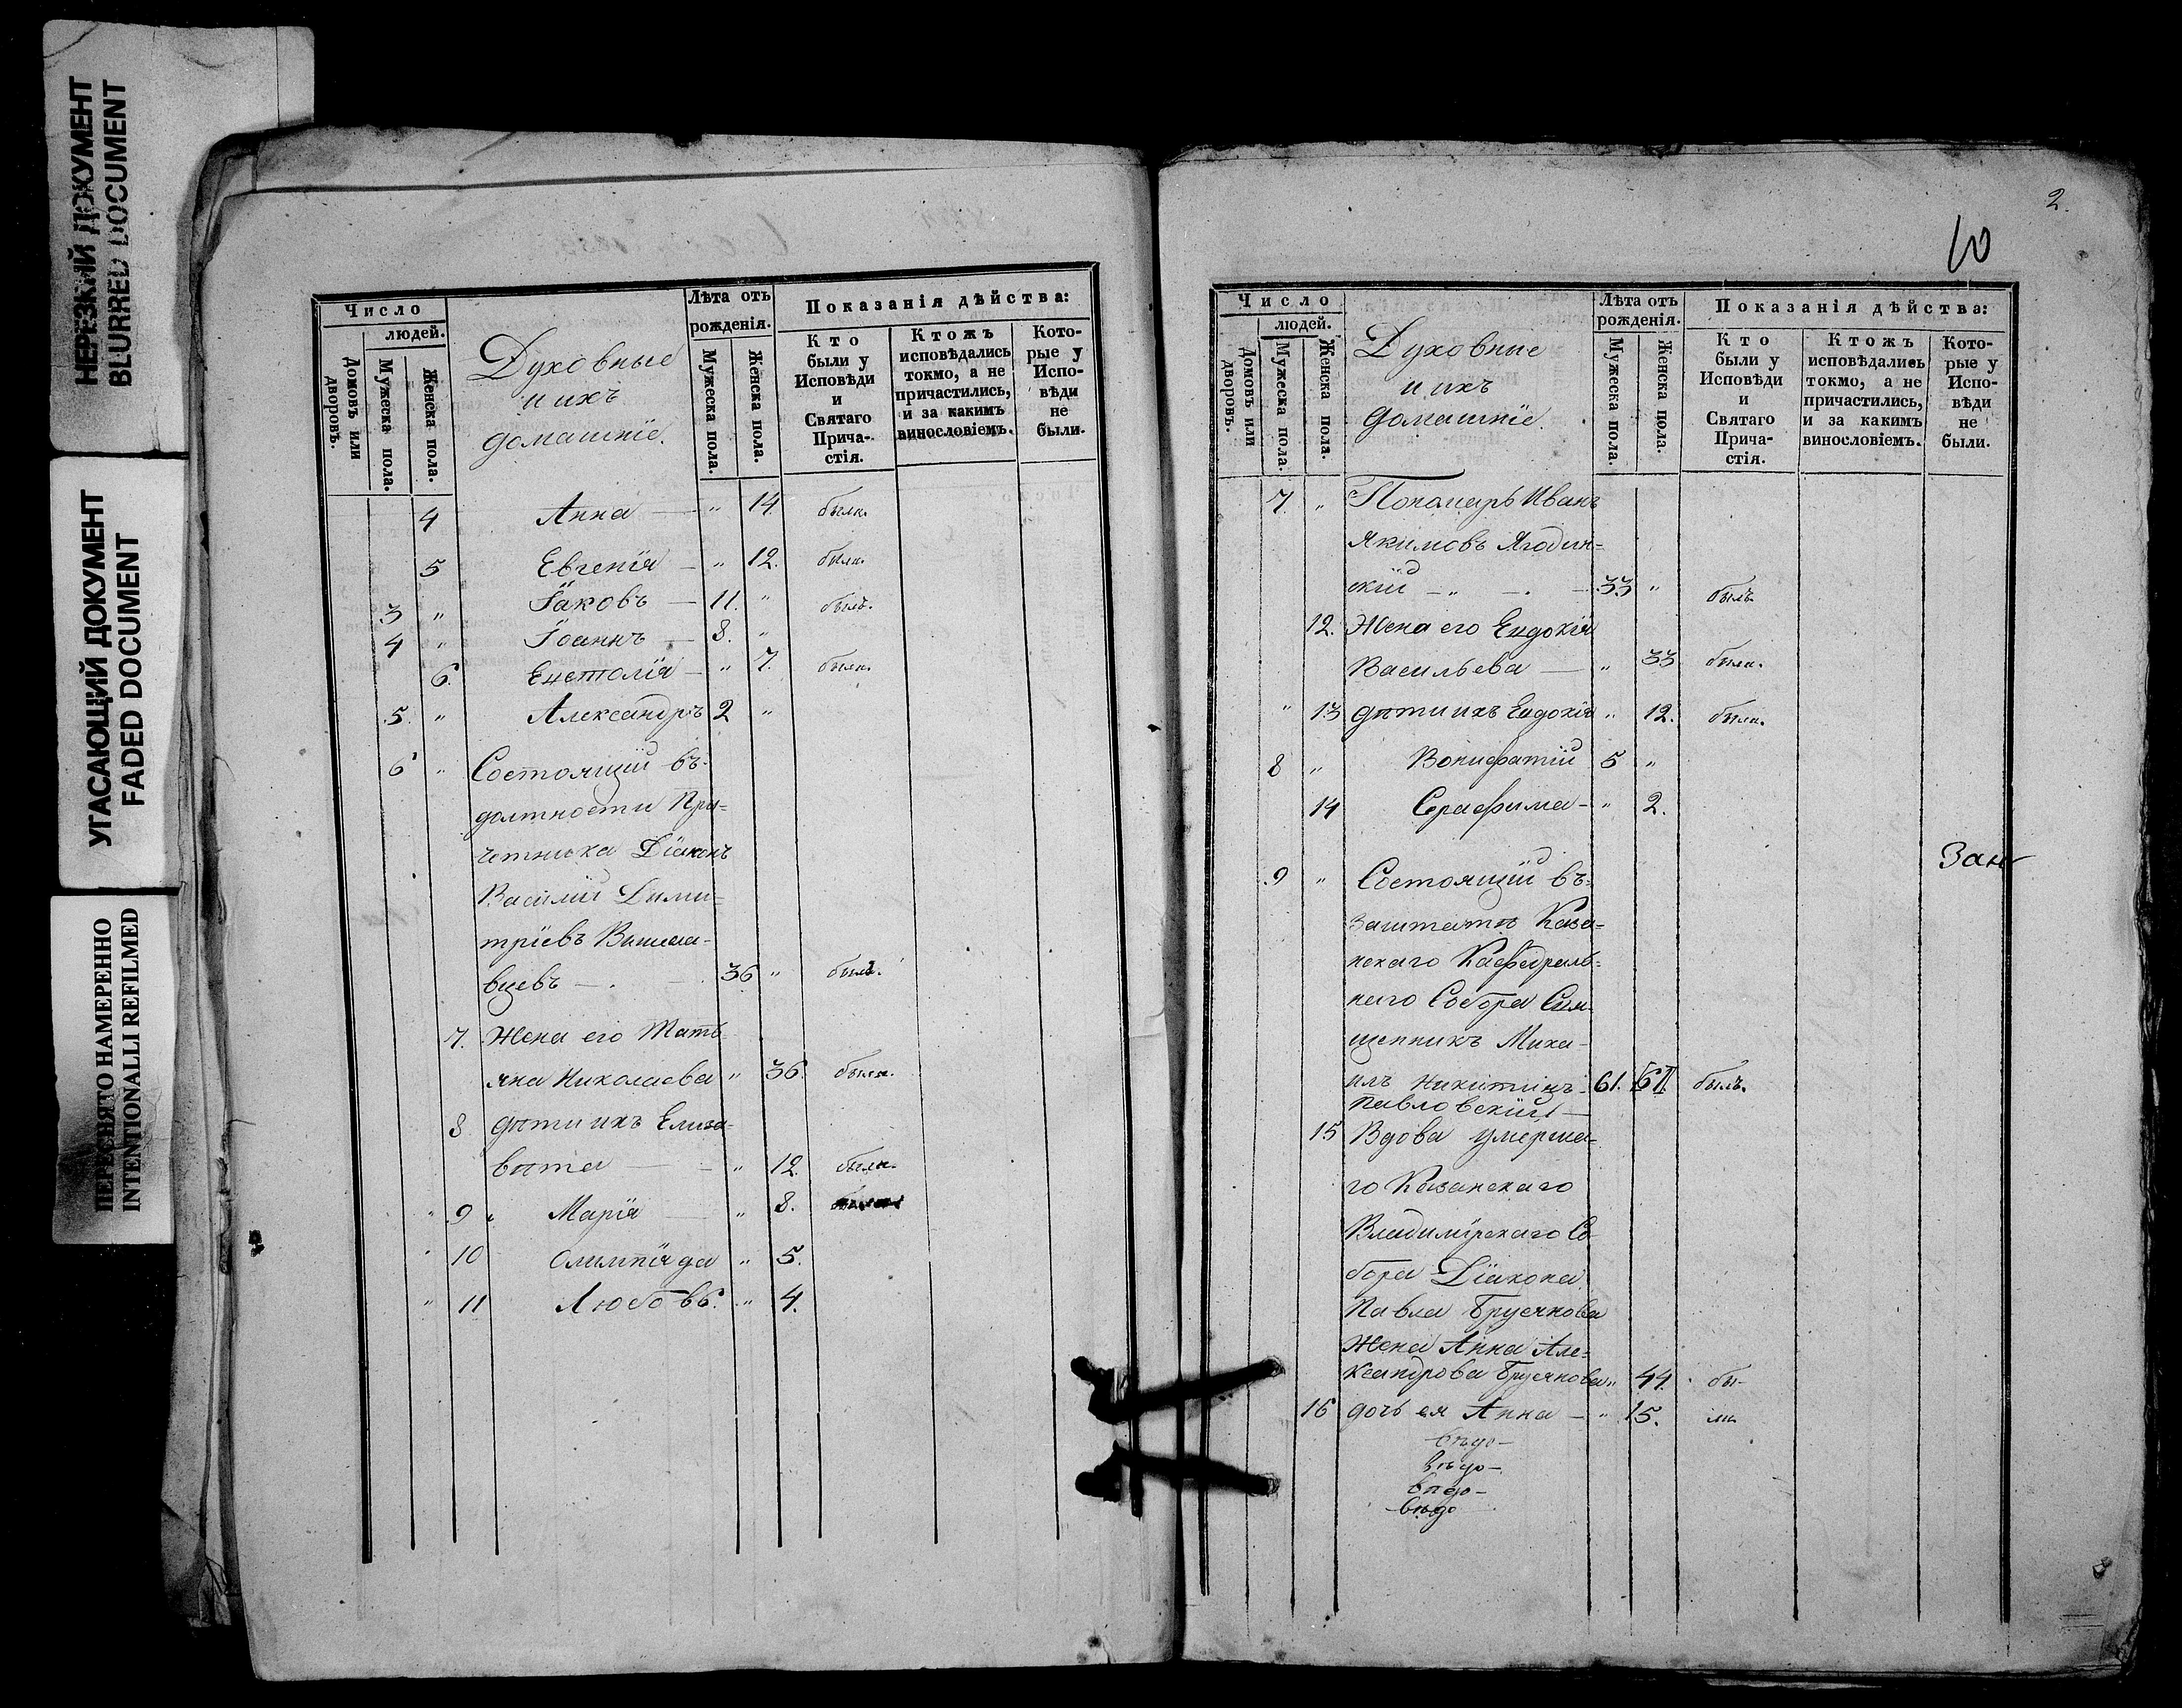 НЕРЕЗКИЙ ДОКУМЕНТ
BLURRED DOCUMENT
УГАСАЮЩИЙ ДОКУМЕНТ
FADED DOCUMENT
ПЕРЕСНЯТО НАМЕРЕННО
INTENTIONALLI REFILMED
Число
людей.
Домовъ или дворовъ.
Мужеска пола.
Женска пола.
Духовные
и ихъ
домашніе.
Лѣта отъ
рожденія.
Мужеска пола.
Женска пола.
Показанія дѣйства:
Кто
были у
Исповѣди
и
Святаго
Прича-
стія.
Ктожъ
исповѣдались
токмо, а не
причастились,
и за какимъ
винословіемъ.
Кото-
рые у
Испо-
вѣди
не
были.
4 Анна — " 14. была.
5 Евгенія — " 12. была.
3 " Іаковъ — 11. " былъ.
4 " Іоаннъ — 8. "
6. Евстолія — " 7. была.
5. " Александръ 2 "
6 " Состоящій въ
должности При-
четника Діаконъ
Василій Дими-
тріевъ
вцевъ — 36 " былъ.
7. Жена его Тать-
яна Николаева " 36. была.
8 дѣти ихъ Елиса-
вѣта — " 12. была.
" 9 Марія — " 8.
10 Олимпіада " 5.
" 11 Любовь. " 4.
2.
10
Число
людей.
Домовъ или дворовъ.
Мужеска пола.
Женска пола.
Духовные
и ихъ
домашніе.
Лѣта отъ
рожденія.
Мужеска пола.
Женска пола.
Показанія дѣйства:
Кто
были у
Исповѣди
и
Святаго
Прича-
стія.
Ктожъ
исповѣдались
токмо, а не
причастились,
и за какимъ
винословіемъ.
Кото-
рые у
Испо-
вѣди
не
были.
7. " Пономарь Иванъ
Якимовъ Ягодин-
скій — 33 " былъ.
12. Жена его Евдокія
Васильева — " 33 была.
" 13 дѣти ихъ Евдокія " 12. была.
8 " Вонифатій 5 "
14 Серафима — " 2.
9 " Состоящій въ
заштатѣ Каза-
нскаго Кафедраль-
наго Собора Свя-
щенникъ Миха-
илъ Никитинъ 61. 61. былъ.
Павловскій —
15 Вдова умерша-
го Казанскаго
Владимірскаго Со-
бора Діакона
Павла Бруснова
Жена Анна Але-
ксандрова Бруснова " 44. бы-
16 дочь ея Анна — " 15. ли
вѣдо-
вѣдо-
вѣдо-
вѣдо